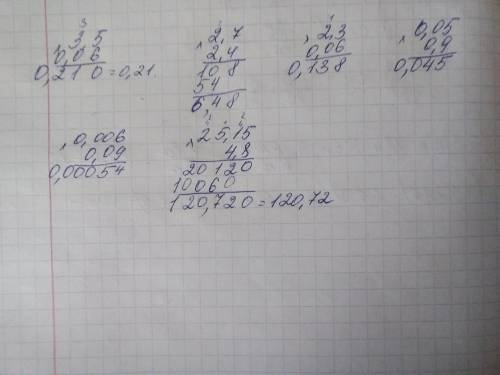 3
3,5
0,06
0,210=0,21.
2
× 2,7
2,4
108
54
6,48
1
× 2,3
0,06
0,138
× 0,05
0,9
0,045
× 0,006
0,09
0,00054
× 25,15
4,8
20120
10060
120,720=120,72